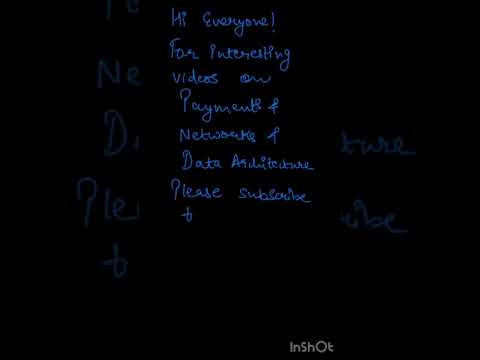 Hi Everyone!
For interesting
videos on
Payments &
Networks &
Data Architecture
Please subscribe
t
InShOt